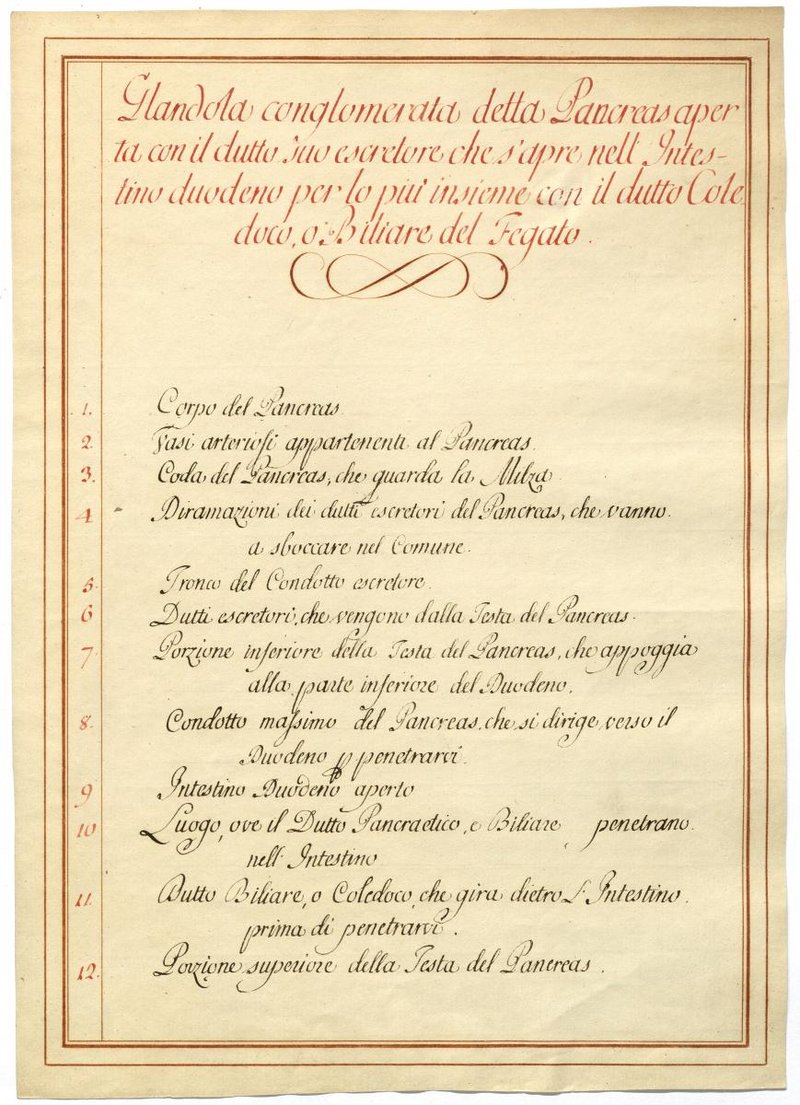 Glandola conglomerata detta Pancreas aper
ta con il dutto suo escretore che s'apre nell' Intes-
tino duodeno per lo più insieme con il dutto Cole
doco, o' Biliare del Fegato.
1. Corpo del Pancreas
2. Vasi arteriosi appartenenti al Pancreas.
3. Coda del Pancreas, che guarda la Milza
4 Diramazioni dei dutti escretori del Pancreas, che vanno.
a sboccare nel Comune.
5. Tronco del Condotto escretore.
6 Dutti escretori, che vengono dalla Testa del Pancreas.
7. Porzione inferiore della Testa del Pancreas, che appoggia
alla parte inferiore del Duodeno.
8. Condotto massimo del Pancreas, che si dirige verso il
Duodeno p penetrarvi.
9 Intestino Duodeno aperto
10 Luogo, ove il Dutto Pancraetico, e Biliare, penetrano.
nell' Intestino
11. Dutto Biliare, o Coledoco, che gira dietro l' Intestino.
prima di penetrarvi.
12. Porzione superiore della Testa del Pancreas.